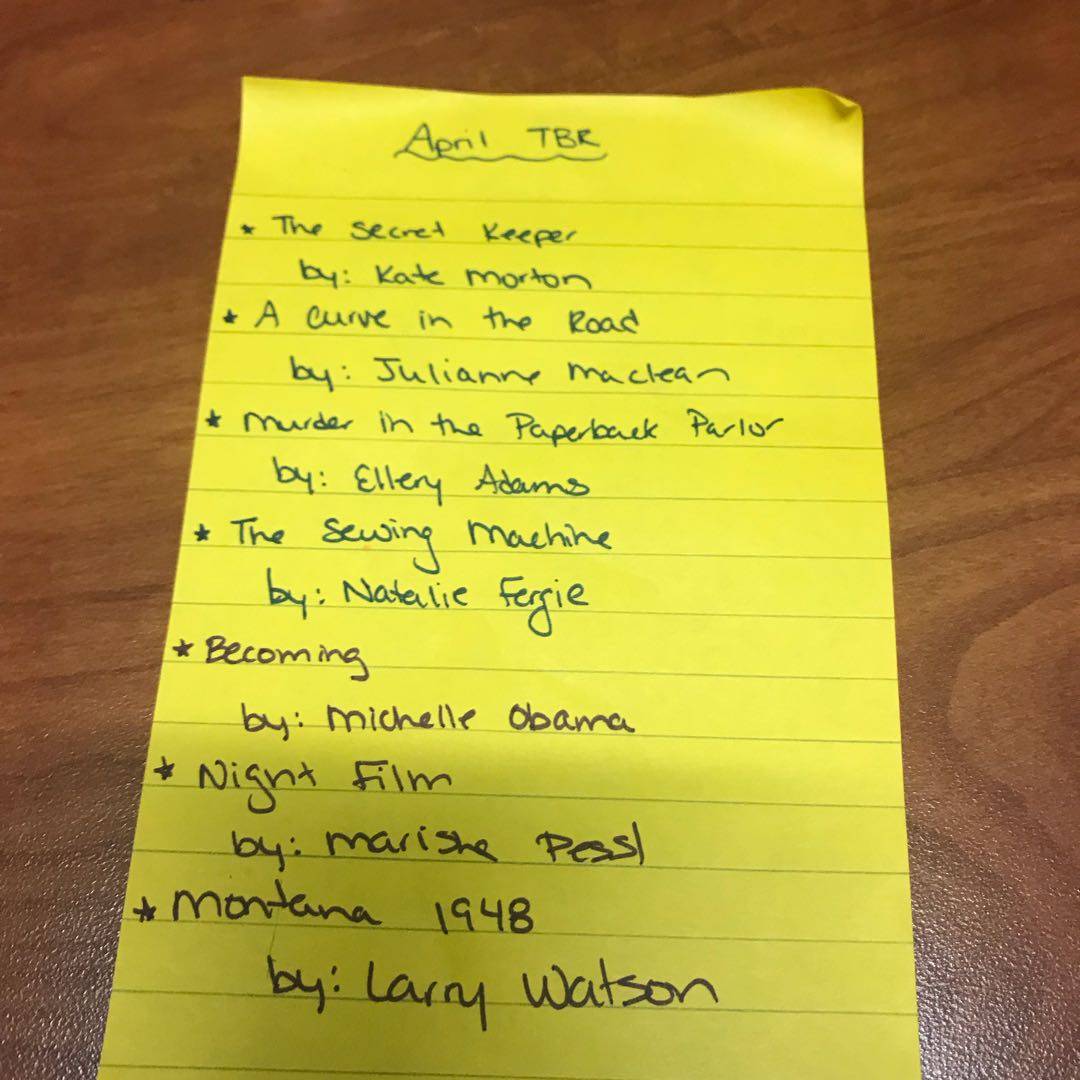 April TBR
* The Secret Keeper
by: Kate Morton
* A Curve in the Road
by: Julianne Maclean
* Murder in the Paperback Parlor
by: Ellery Adams
* The Sewing Machine
by: Natalie Fergie
* Becoming
by: Michelle Obama
* Night Film
by: Marisha Pessl
* Montana 1948
by: Larry Watson